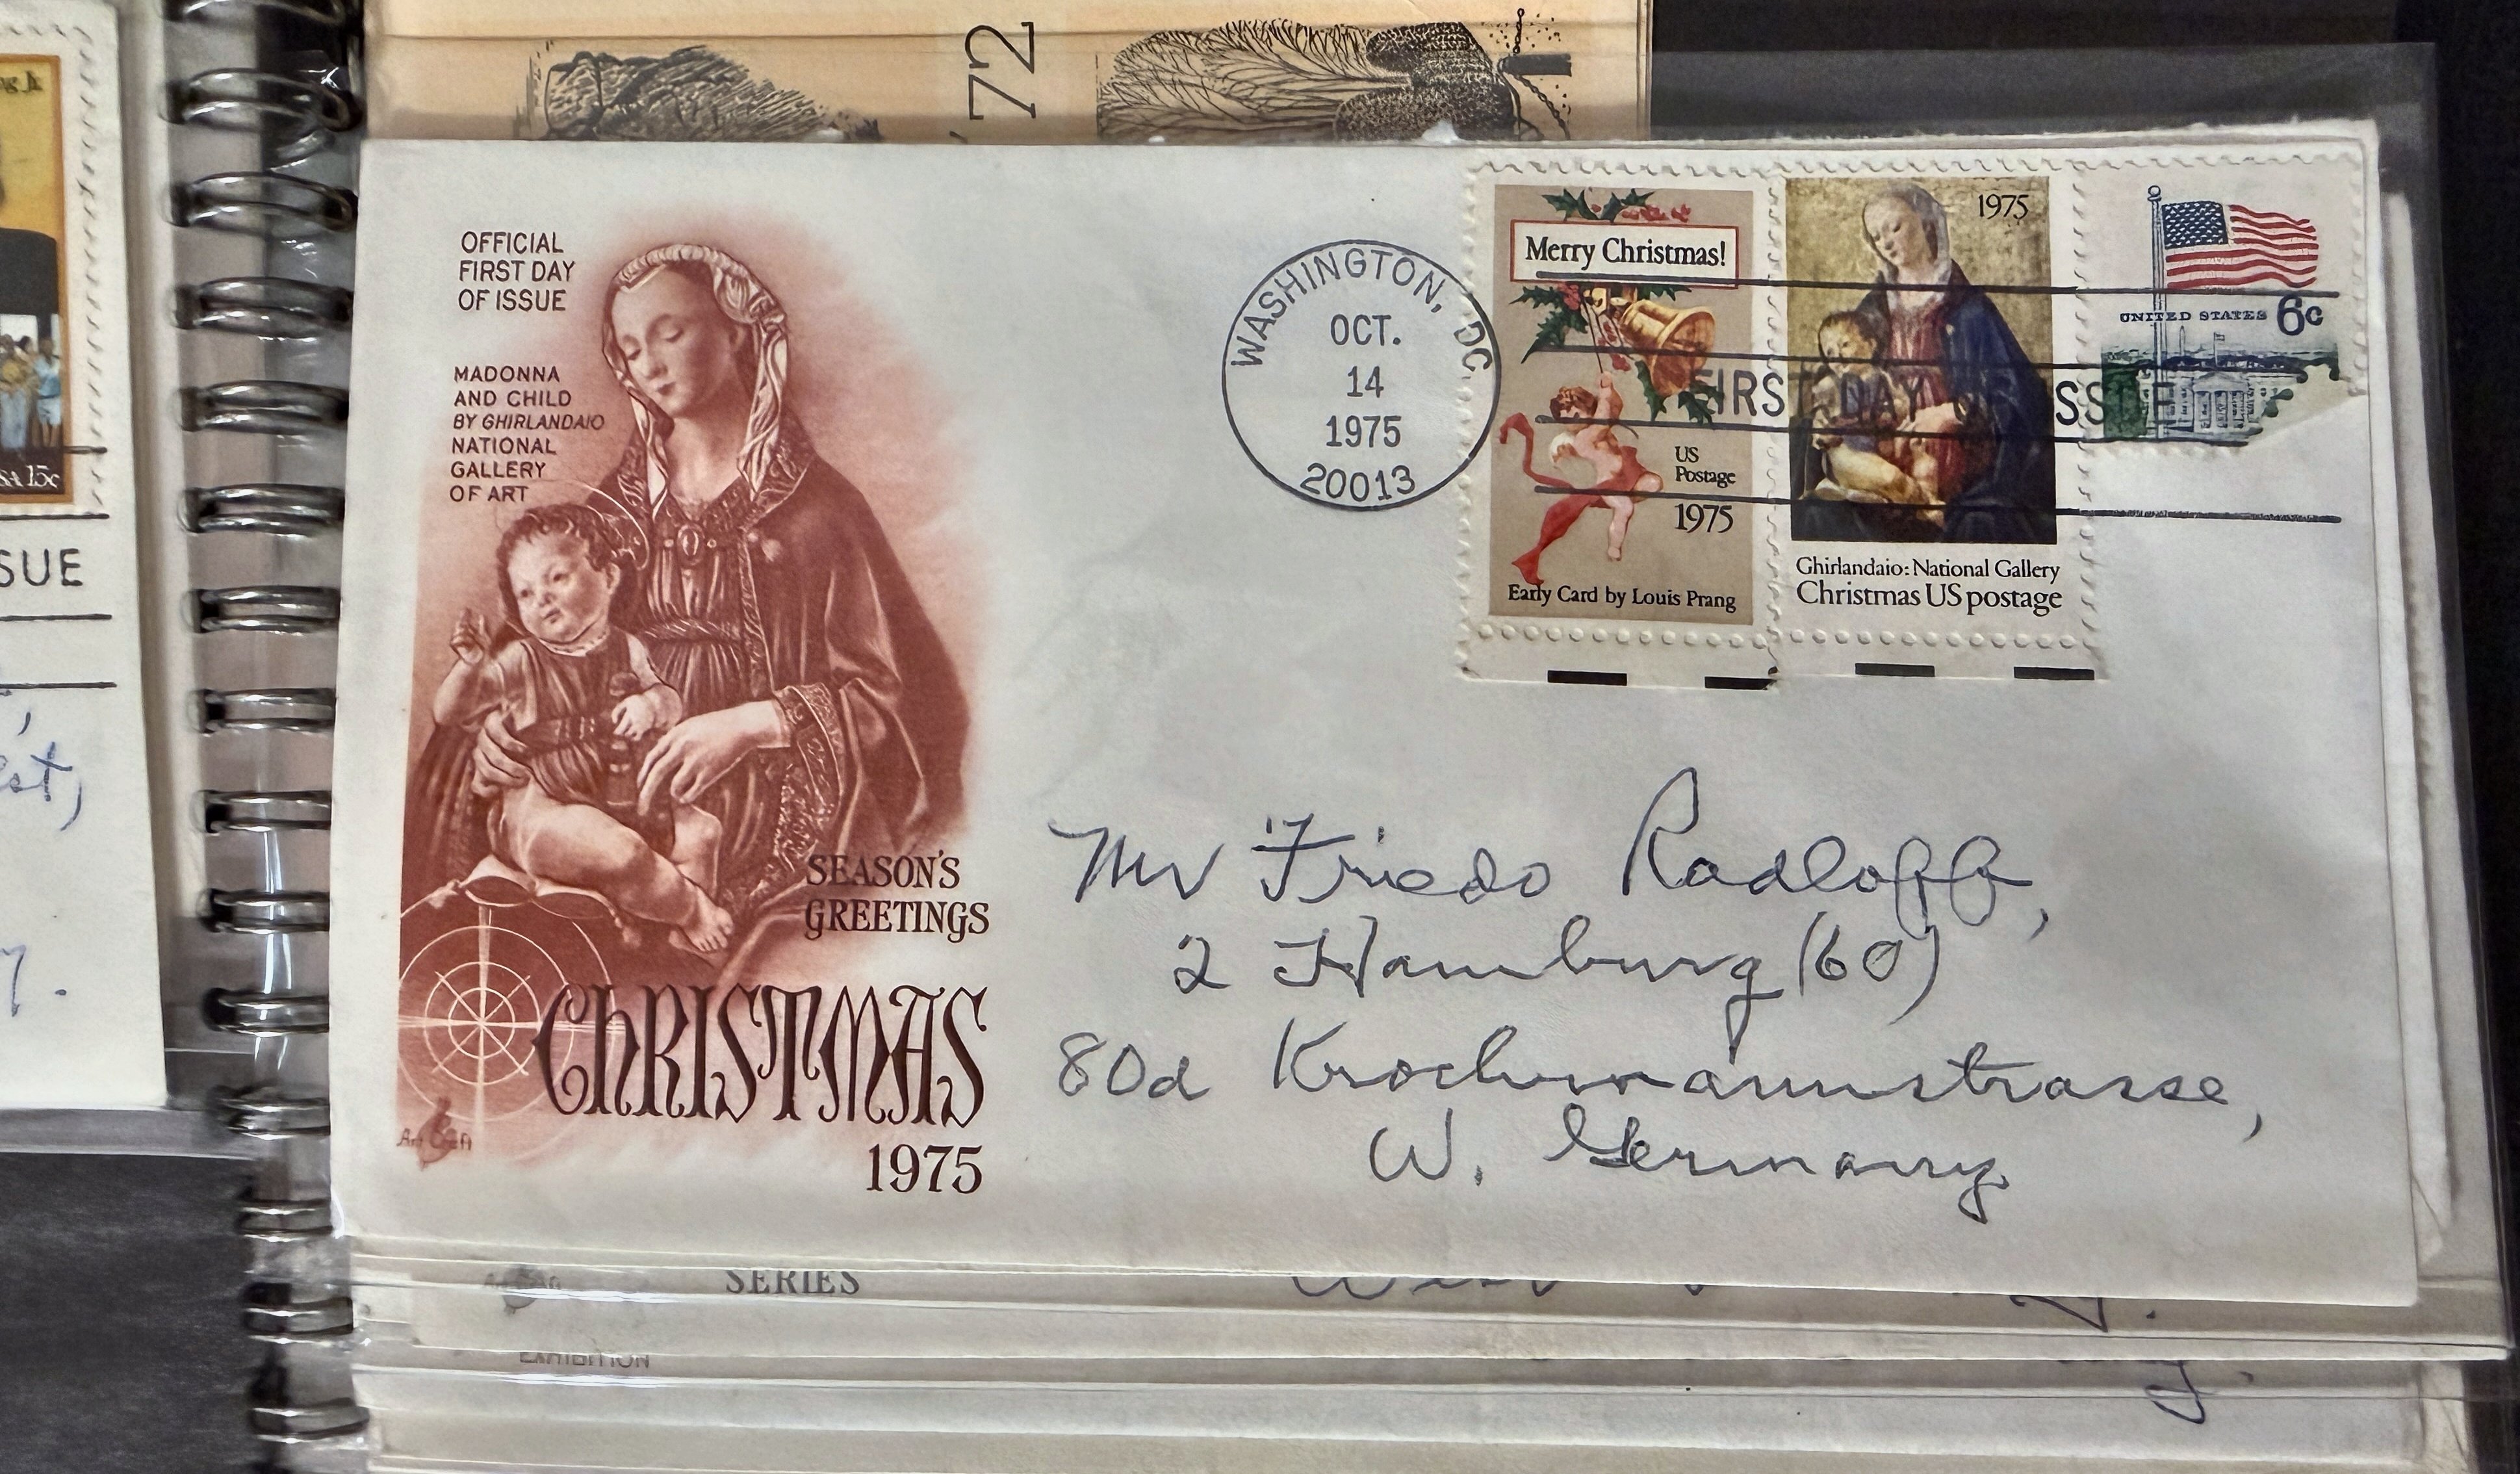 '72
g Jr.
SA 15c
SUE
est,
OFFICIAL
FIRST DAY
OF ISSUE
MADONNA
AND CHILD
BY GHIRLANDAIO
NATIONAL
GALLERY
OF ART
SEASON'S
GREETINGS
CHRISTMAS
1975
Art Craft
WASHINGTON, DC
OCT.
14
1975
20013
Merry Christmas!
US
Postage
1975
Early Card by Louis Prang
1975
Ghirlandaio: National Gallery
Christmas US postage
UNITED STATES 6c
FIRST DAY OF ISSUE
Mr Friedo Radloff,
2 Hamburg (60)
80d Krochmannstrasse,
W. Germany
SERIES
EXHIBITION